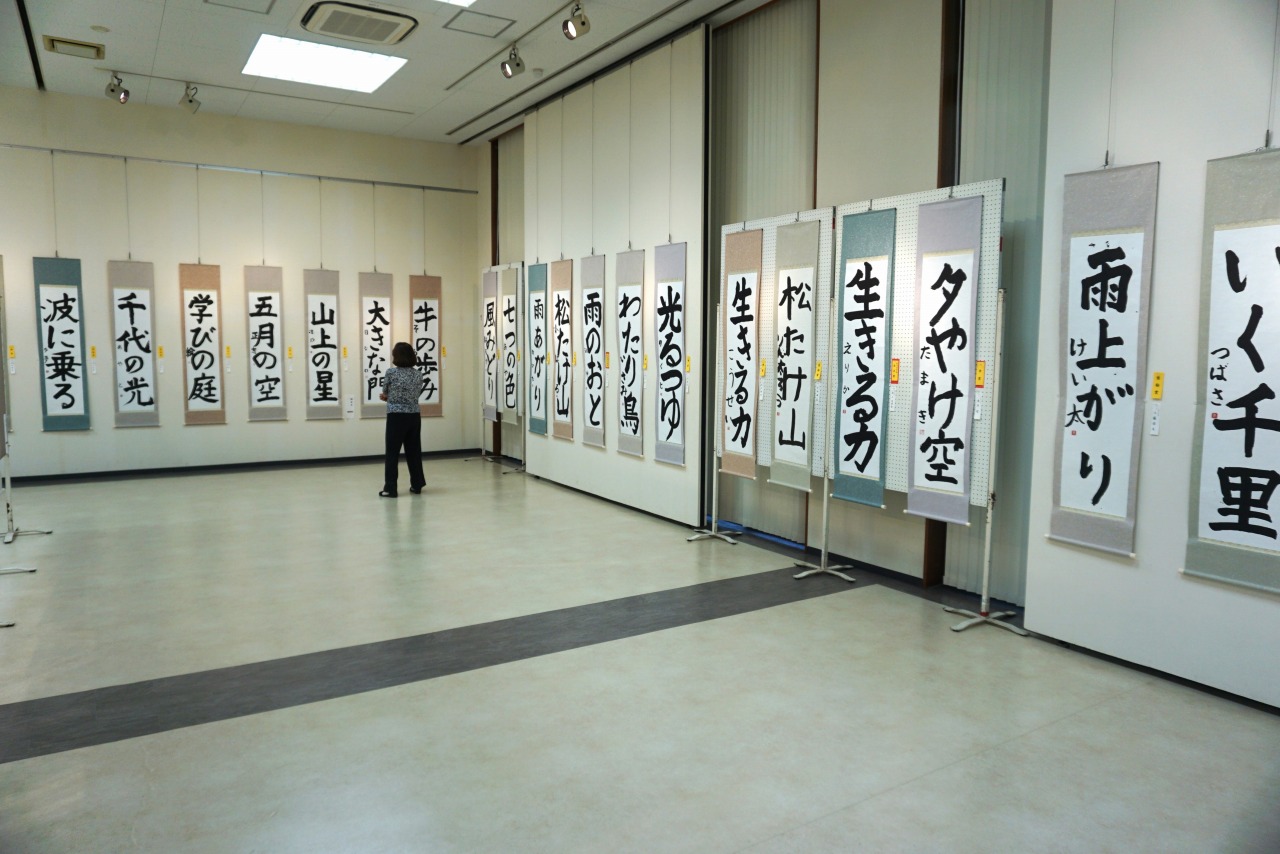 波に乗る
千代の光
学びの庭
五月の空
山上の星
大きな門
牛の歩み
風みどり
七つの色
雨あがり
松たけ山
雨のおと
わたり鳥
光るつゆ
生きる力
こうせい
松たけ山
生きる力
えりか
夕やけ空
たまき
雨上がり
けい太
いく千里
つばさ